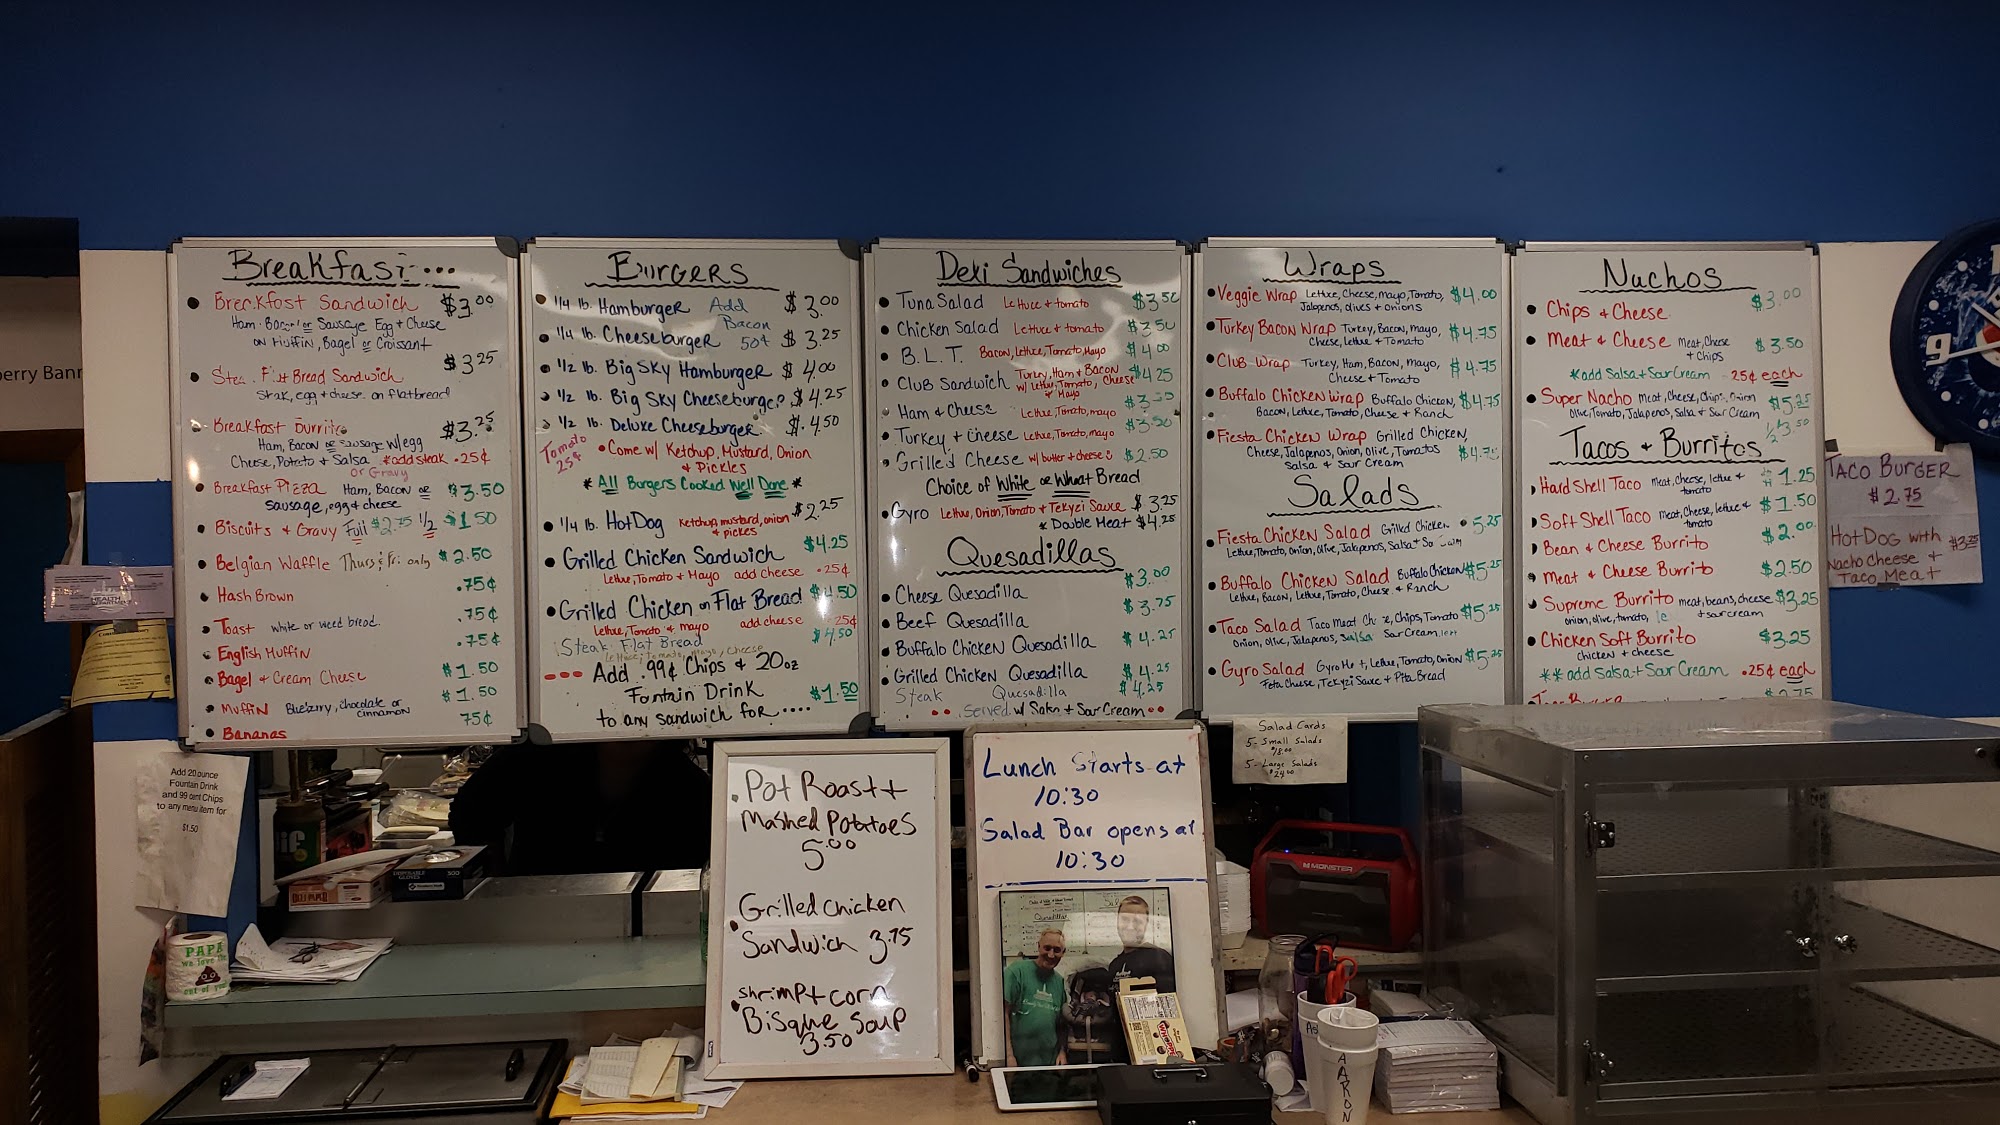 Breakfast...
Breakfast Sandwich $3.00
Ham, Bacon or Sausage Egg + Cheese
on Muffin, Bagel or Croissant
Flat Bread Sandwich $3.25
Steak, egg + cheese on flatbread
Breakfast Burrito $3.25
Ham, Bacon or Sausage w/egg
Cheese, Potato + Salsa *add steak .25¢
or Gravy
Breakfast Pizza Ham, Bacon or $3.50
Sausage, egg + cheese
Biscuits + Gravy Full $2.75 1/2 $1.50
Belgian Waffle Thurs + Fri only $2.50
Hash Brown .75¢
Toast white or weed bread .75¢
English Muffin .75¢
Bagel + Cream Cheese $1.50
Muffin Blueberry, chocolate or $1.50
cinnamon
Bananas 75¢
Burgers
1/4 lb. Hamburger $3.00
Add Bacon 50¢
1/4 lb. Cheeseburger $3.25
1/2 lb. Big Sky Hamburger $4.00
1/2 lb. Big Sky Cheeseburger $4.25
1/2 lb. Deluxe Cheeseburger $4.50
Tomato 25¢
Come w/ Ketchup, Mustard, Onion
+ Pickles
* All Burgers Cooked Well Done *
1/4 lb. HotDog Ketchup, mustard, onion $2.25
+ pickles
Grilled Chicken Sandwich $4.25
Lettuce, Tomato + Mayo add cheese .25¢
Grilled Chicken on Flat Bread $4.50
Lettuce, Tomato + mayo add cheese .25¢
Steak Flat Bread $4.50
Lettuce, Tomato, Mayo, Cheese
Add .99¢ Chips + 20oz
Fountain Drink
to any sandwich for .... $1.50
Deli Sandwiches
Tuna Salad Lettuce + tomato $3.50
Chicken Salad Lettuce + tomato $3.50
B.L.T. Bacon, Lettuce, Tomato, Mayo $4.00
Club Sandwich Turkey, Ham + Bacon $4.25
w/ Lettuce, Tomato, Cheese
+ Mayo
Ham + Cheese Lettuce, Tomato, mayo $3.50
Turkey + Cheese Lettuce, Tomato, mayo $3.50
Grilled Cheese w/ butter + cheese $2.50
Choice of White or Wheat Bread
Gyro Lettuce, Onion, Tomato + Tekyzi Sauce $3.25
* Double Meat $4.25
Quesadillas
Cheese Quesadilla $3.00
Beef Quesadilla $3.75
Buffalo Chicken Quesadilla $4.25
Grilled Chicken Quesadilla $4.25
Steak Quesadilla $4.25
Served w/ Salsa + Sour Cream
Wraps
Veggie Wrap Lettuce, Cheese, mayo, Tomato, $4.00
Jalapenos, olives + onions
Turkey Bacon Wrap Turkey, Bacon, mayo, $4.75
Cheese, Lettuce + Tomato
Club Wrap Turkey, Ham, Bacon, mayo, $4.75
Cheese + Tomato
Buffalo Chicken Wrap Buffalo Chicken, $4.75
Bacon, Lettuce, Tomato, Cheese + Ranch
Fiesta Chicken Wrap Grilled Chicken,
Cheese, Jalapenos, Onion, Olive, Tomatos $4.75
Salsa + Sour Cream
Salads
Fiesta Chicken Salad Grilled Chicken 5.25
Lettuce, Tomato, Onion, Olive, Jalapenos, Salsa +
Buffalo Chicken Salad Buffalo Chicken $5.25
Lettuce, Bacon, Lettuce, Tomato, Cheese + Ranch
Taco Salad Taco Meat Chips, Tomato $5.25
Onion, olive, Jalapenos, Salsa Sour Cream
Gyro Salad Gyro Lettuce, Tomato, Onion $5.25
Feta Cheese, Tekyzi Sauce + Pita Bread
Nachos
Chips + Cheese $3.00
Meat + Cheese Meat, Cheese $3.50
+ Chips
*add Salsa + Sour Cream 25¢ each
Super Nacho Meat, Cheese, Chips, Onion $5.25
Olive, Tomato, Jalapenos, Salsa + Sour Cream
1/2 $3.50
Tacos + Burritos
Hard Shell Taco Meat, Cheese, lettuce + $1.25
tomato
Soft Shell Taco Meat, Cheese, lettuce + $1.50
tomato
Bean + Cheese Burrito $2.00
Meat + Cheese Burrito $2.50
Supreme Burrito meat, beans, cheese $3.25
onion, olive, tomato, + sour cream
Chicken Soft Burrito $3.25
chicken + cheese
** add Salsa + Sour Cream .25¢ each
$2.75
Taco Burger
$2.75
HotDog with $3.25
Nacho Cheese +
Taco Meat
Add 20 ounce
Fountain Drink
and 99 cent Chips
to any menu item for
$1.50
Pot Roast +
Mashed Potatoes
5.00
Grilled Chicken
Sandwich 3.75
Shrimp + corn
Bisque Soup
3.50
Lunch Starts at
10:30
Salad Bar opens at
10:30
Salad Cards
5 - Small Salads
$18.00
5 - Large Salads
$24.00
MONSTER
PAPA
we love the
out of you
jif
DISPOSABLE GLOVES 300
HEALTH
Quesadillas
AARON
9
berry Bann